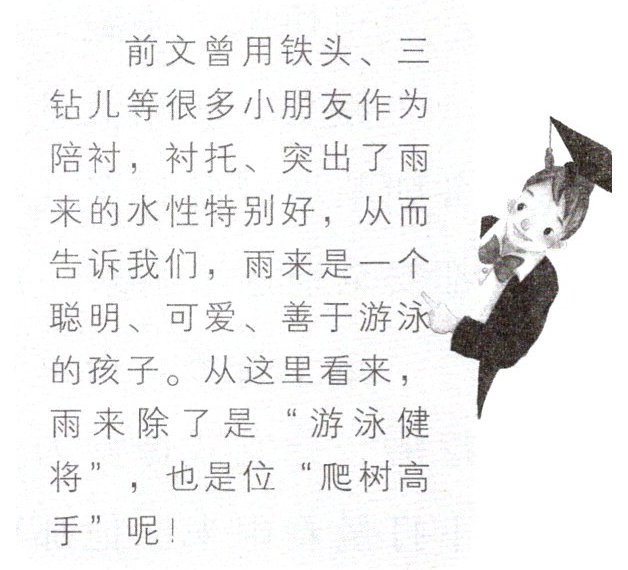 前文曾用铁头、三
钻儿等很多小朋友作为
陪衬，衬托、突出了雨
来的水性特别好，从而
告诉我们，雨来是一个
聪明、可爱、善于游泳
的孩子。从这里看来，
雨来除了是“游泳健
将”，也是位“爬树高
手”呢！